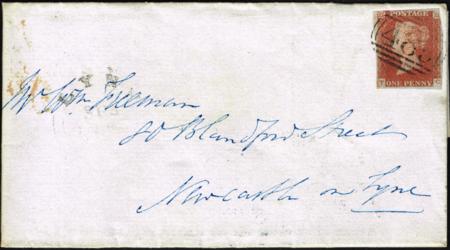 POSTAGE
ONE PENNY
Mr Wm Freeman
80 Blandford Street
Newcastle on Tyne